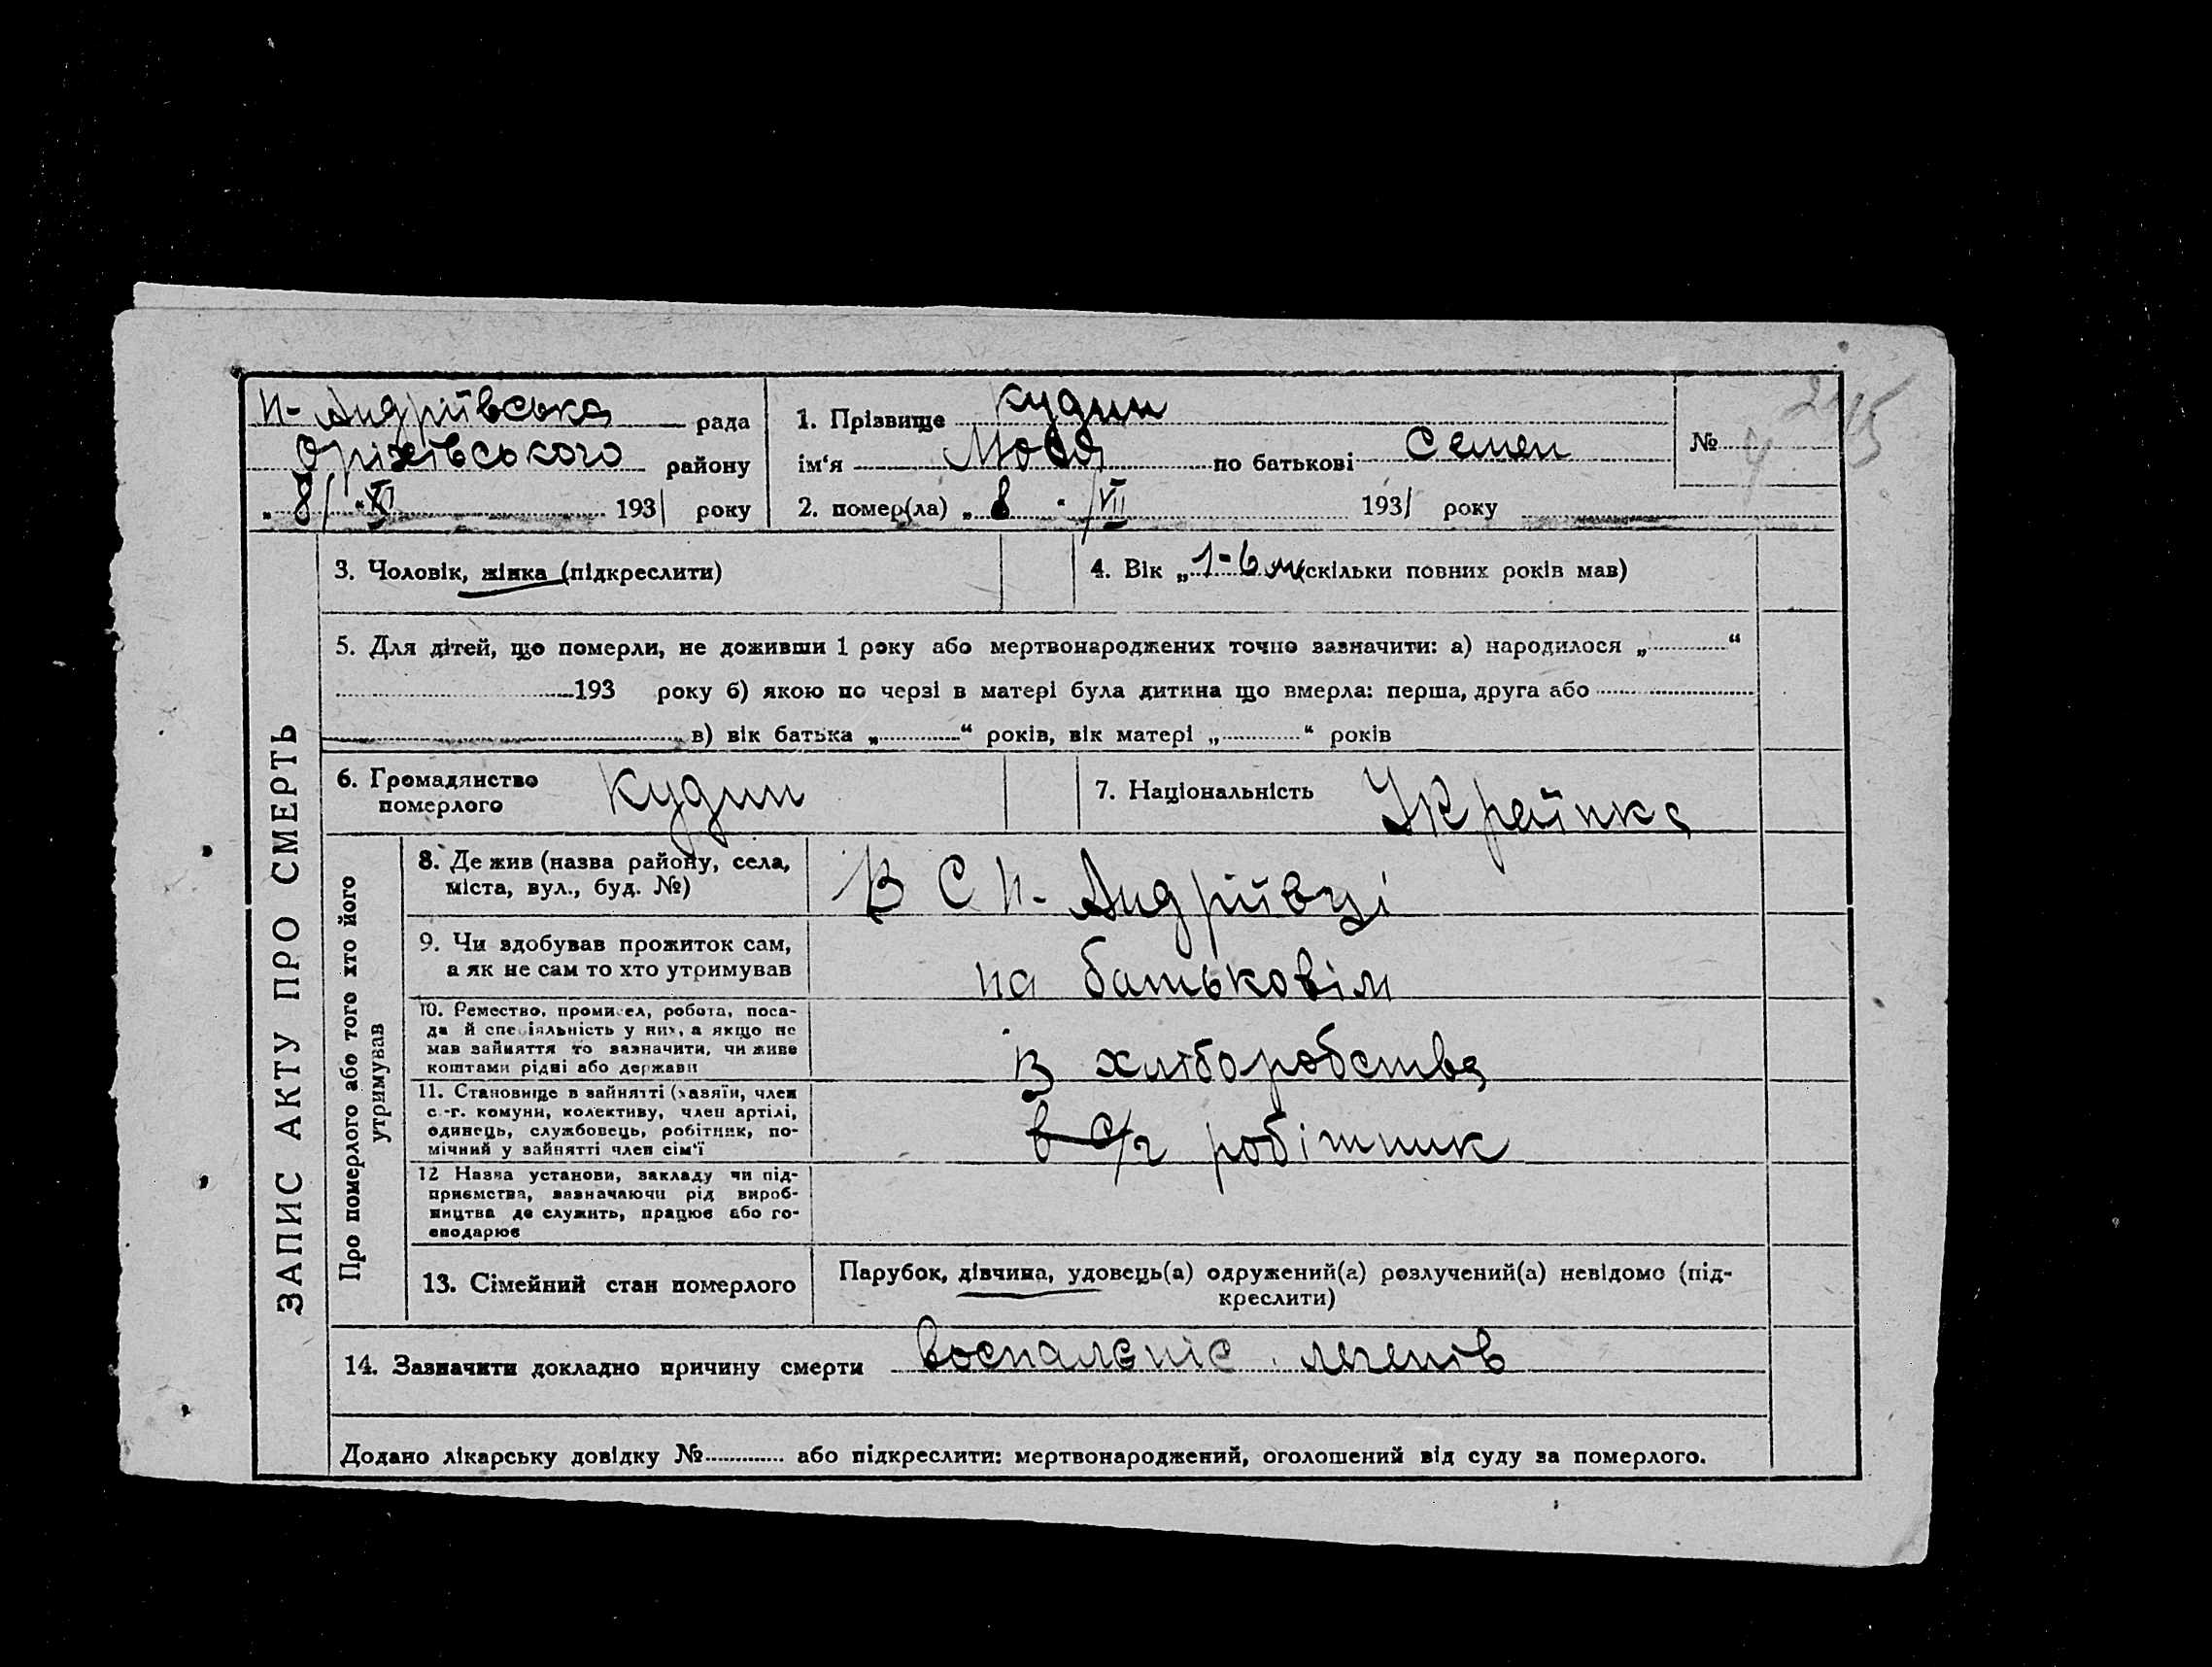 Н-Андріївська рада
Оріхівського району
„8/“ XI 1931 року
1. Прізвище Кудин
ім‘я по батькові Семен
2. помер(ла) „8“ /VII 1931 року
№
ЗАПИС АКТУ ПРО СМЕРТЬ
3. Чоловік, жінка (підкреслити)
4. Вік „1-6 м (скільки повних років мав)
5. Для дітей, що померли, не доживши 1 року або мертвонароджених точно зазначити: а) народилося „ “
193 року б) якою по черзі в матері була дитина що вмерла: перша, друга або
в) вік батька „ “ років, вік матері „ “ років
6. Громадянство
померлого Кудин
7. Національність Украйнка
Про померлого або того хто його
утримував
8. Де жив (назва району, села,
міста, вул., буд. №)
В С Н-Андріївці
9. Чи здобував прожиток сам,
а як не сам то хто утримував
на батьковім
10. Ремество, промисел, робота, поса-
да й спеціяльність у них, а якщо не
мав зайняття то зазначити, чи живе
коштами рідні або держави
з хліборобства
11. Становище в зайнятті (хазяїн, член
с.-г. комуни, колективу, член артілі,
одинець, службовець, робітник, по-
мічний у зайнятті член сім‘ї
в с/г робітник
12 Назва установи, закладу чи під-
приємства, зазначаючи рід вироб-
ництва де служить, працює або го-
сподарює
13. Сімейний стан померлого
Парубок, дівчина, удовець(а) одружений(а) розлучений(а) невідомо (під-
креслити)
14. Зазначити докладно причину смерти воспаленіє легенів
Додано лікарську довідку № або підкреслити: мертвонароджений, оголошений від суду за померлого.